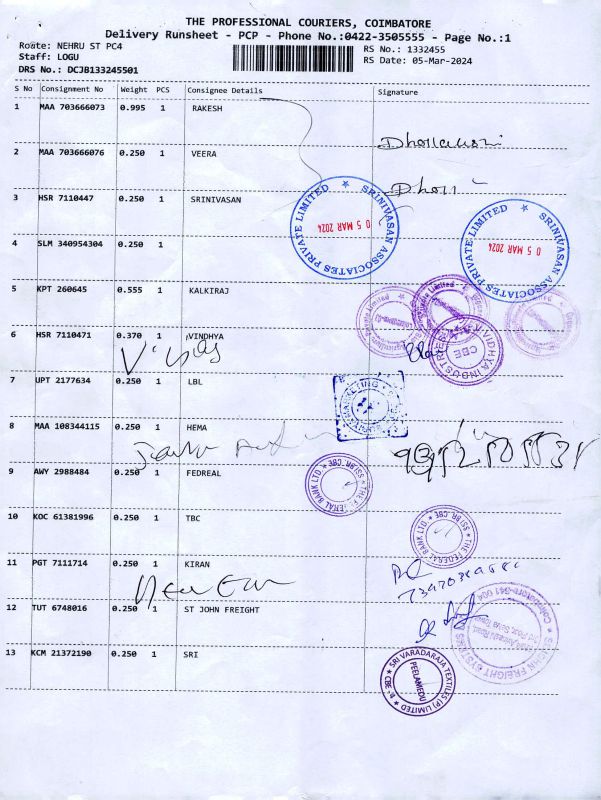 THE PROFESSIONAL COURIERS, COIMBATORE
Delivery Runsheet - PCP - Phone No.:0422-3505555 - Page No.:1
Route: NEHRU ST PC4 RS No.: 1332455
Staff: LOGU RS Date: 05-Mar-2024
DRS No.: DCJB133245501
S No Consignment No Weight PCS Consignee Details Signature
1 MAA 703666073 0.995 1 RAKESH
2 MAA 703666076 0.250 1 VEERA
3 HSR 7110447 0.250 1 SRINIVASAN
SRINIVASAN ASSOCIATES PRIVATE LIMITED
05 MAR 2024
SRINIVASAN ASSOCIATES PRIVATE LIMITED
05 MAR 2024
4 SLM 340954304 0.250 1
5 KPT 260645 0.555 1 KALKIRAJ
6 HSR 7110471 0.370 1 VINDHYA
VIDHYA INDUSTRIES
CBE
7 UPT 2177634 0.250 1 LBL
8 MAA 108344115 0.250 1 HEMA
9 AWY 2988484 0.250 1 FEDREAL
THE FEDERAL BANK LTD. SSI BR. CBE
10 KOC 61381996 0.250 1 TBC
THE FEDERAL BANK LTD. SSI BR. CBE
11 PGT 7111714 0.250 1 KIRAN
12 TUT 6748016 0.250 1 ST JOHN FREIGHT
ST JOHN FREIGHT SYSTEMS
Coimbatore-641 004
13 KCM 21372190 0.250 1 SRI
SRI VARADARAJA TEXTILES (P) LIMITED
PEELAMEDU
CBE